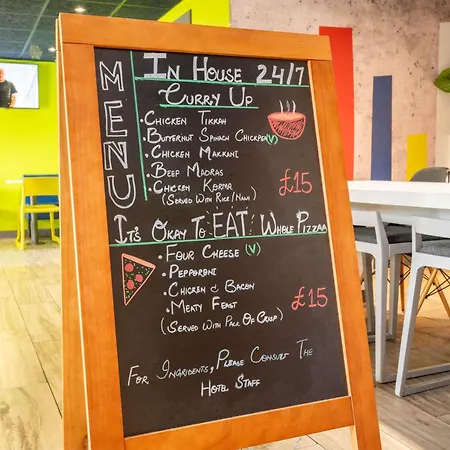 MENU
IN HOUSE 24/7
CURRY UP
• CHICKEN TIKKAH
• BUTTERNUT SPINACH CHICKPEA (V)
• CHICKEN MAKKANI
• BEEF MADRAS
• CHICKEN KORMA
(SERVED WITH RICE/NAAN)
£15
IT'S OKAY TO "EAT" WHOLE PIZZAA
• FOUR CHEESE (V)
• PEPPORONI
• CHICKEN & BACON
• MEATY FEAST
(SERVED WITH PACK OF CRISP)
£15
FOR INGRIDENTS, PLEASE CONSULT THE
HOTEL STAFF